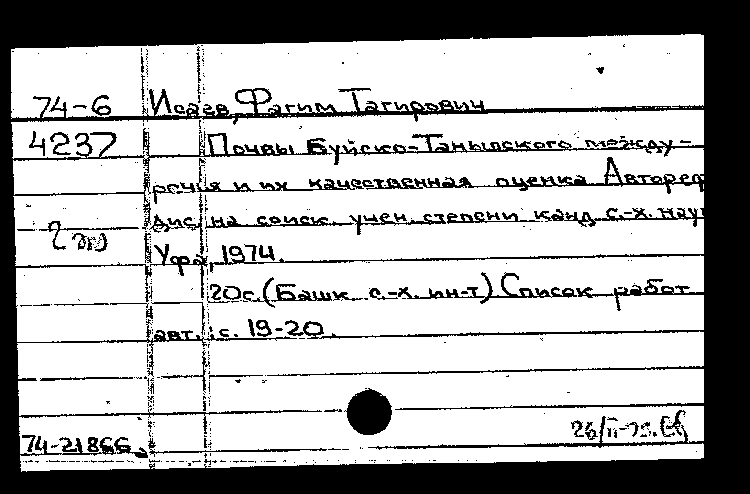 74-6 Исаев, Фагим Тагирович
4237 Почвы Буйско-Таныпского между-
речья и их качественная оценка Автореф
дис. на соиск. учен. степени канд. с.-х. наук
Уфа, 1974.
20с. (Башк. с.-х. ин-т) Список работ
авт.: с. 19-20.
74-21866
26/II-75.